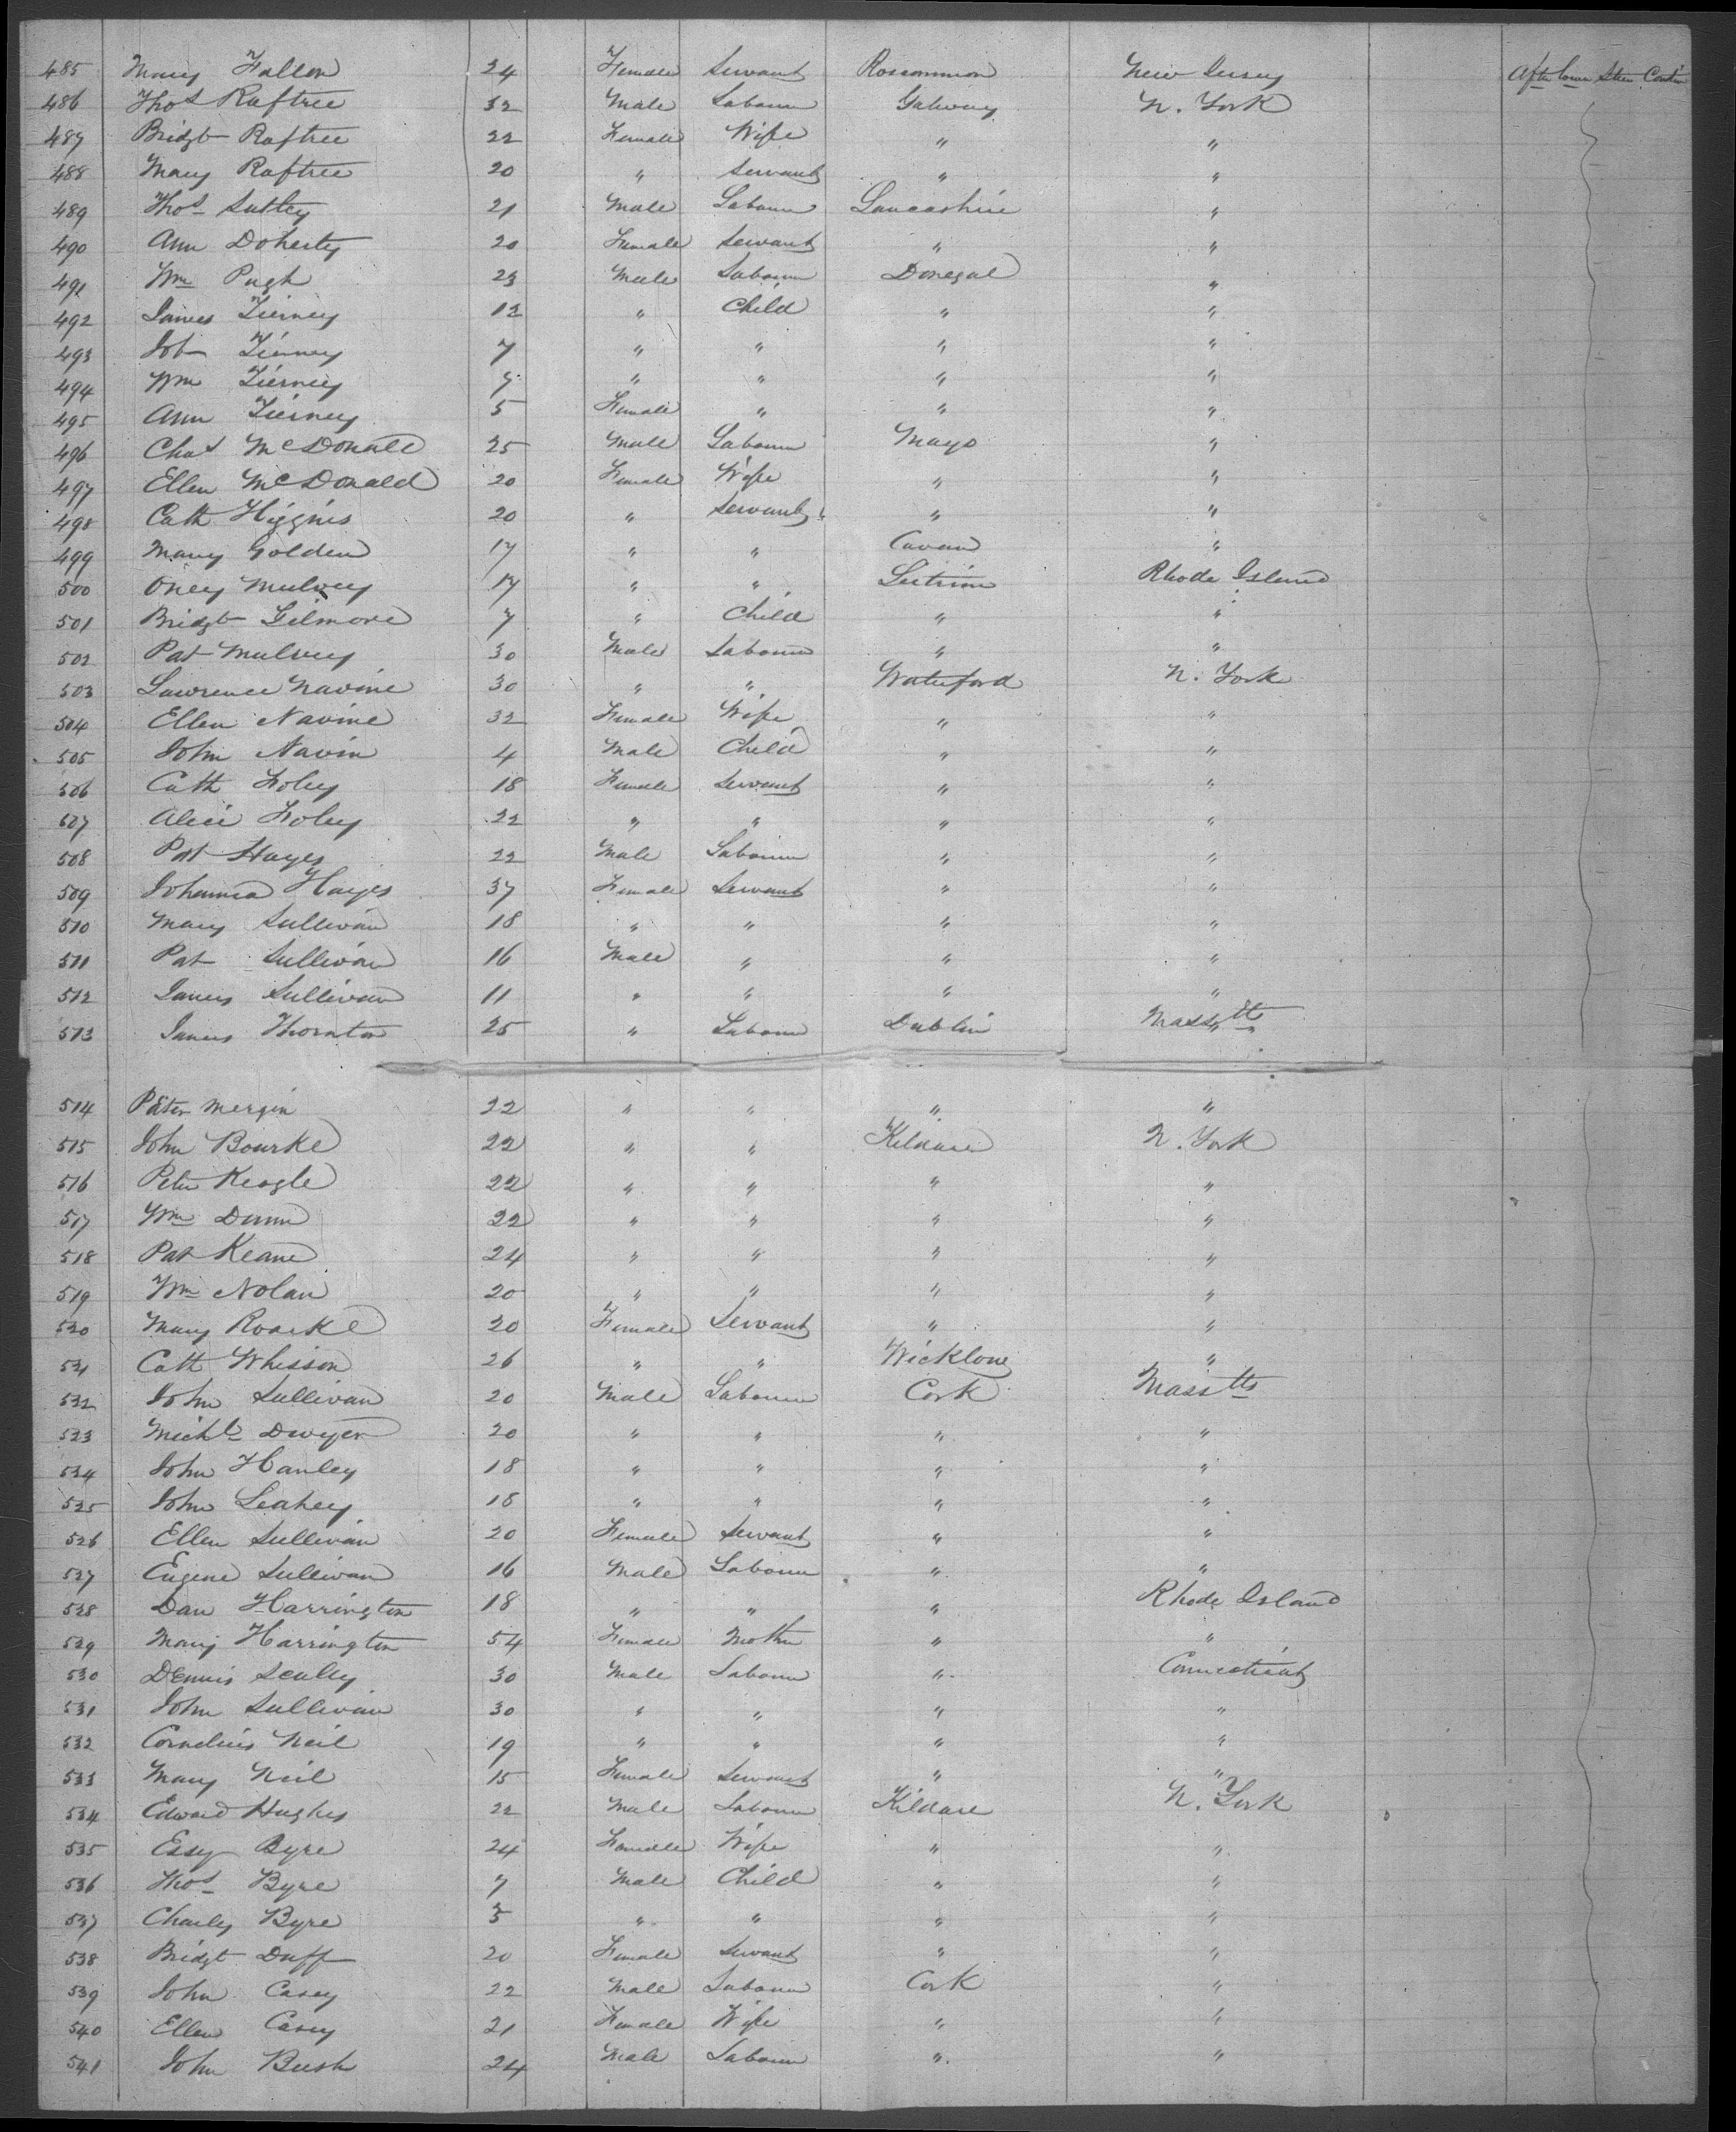 485 Mary Fallon 24 Female Servant Roscommon New Jersey Aft lower Steer. Cont'd
486 Thos Raftree 32 Male Labourer Galway N. York
487 Bridgt Raftree 22 Female Wife " "
488 Mary Raftree 20 " Servant " "
489 Thos Suttey 21 Male Labourer Lancashire "
490 Ann Doherty 20 Female Servant " "
491 Wm Pugh 23 Male Labourer Donegal "
492 James Tierney 12 " Child " "
493 Joh Tierney 7 " " " "
494 Wm Tierney 7 " " " "
495 Ann Tierney 5 Female " " "
496 Chas McDonald 25 Male Labourer Mayo "
497 Ellen McDonald 20 Female Wife " "
498 Cath Higgins 20 " Servant " "
499 Mary Golden 17 " " Cavan "
500 Oney Mulvey 17 " " Leitrim Rhode Island
501 Bridgt Gilmore 7 " Child " "
502 Pat Mulvey 30 Male Labourer " "
503 Lawrence Navine 30 " " Waterford N. York
504 Ellen Navine 32 Female Wife " "
505 John Navin 4 Male Child " "
506 Cath Foley 18 Female Servant " "
507 Alice Foley 22 " " " "
508 Pat Hayes 22 Male Labourer " "
509 Johanna Hayes 37 Female Servant " "
510 Mary Sullivan 18 " " " "
511 Pat Sullivan 16 Male " " "
512 James Sullivan 11 " " " "
513 James Thornton 25 " Labourer Dublin Massts
514 Peter Mergin 22 " " " "
515 John Bourke 22 " " Kildare N. York
516 Peter Keogle 22 " " " "
517 Wm Dunn 22 " " " "
518 Pat Keane 24 " " " "
519 Wm Nolan 20 " " " "
520 Mary Roarke 20 Female Servant " "
521 Cath Whisson 26 " " Wicklow "
522 John Sullivan 20 Male Labourer Cork Massts
523 Michl Dwyer 20 " " " "
524 John Hanley 18 " " " "
525 John Leahey 18 " " " "
526 Ellen Sullivan 20 Female Servant " "
527 Eugene Sullivan 16 Male Labourer " "
528 Dan Harrington 18 " " " Rhode Island
529 Mary Harrington 54 Female Mother " "
530 Dennis Scully 30 Male Labourer " Connecticut
531 John Sullivan 30 " " " "
532 Cornelius Neil 19 " " " "
533 Mary Neil 15 Female Servant " "
534 Edward Hughes 22 Male Labourer Kildare N. York
535 Essy Byre 24 Female Wife " "
536 Thos Byre 7 Male Child " "
537 Charley Byre 5 " " " "
538 Bridgt Duff 20 Female Servant " "
539 John Casey 22 Male Labourer Cork "
540 Ellen Casey 21 Female Wife " "
541 John Bush 24 Male Labourer " "